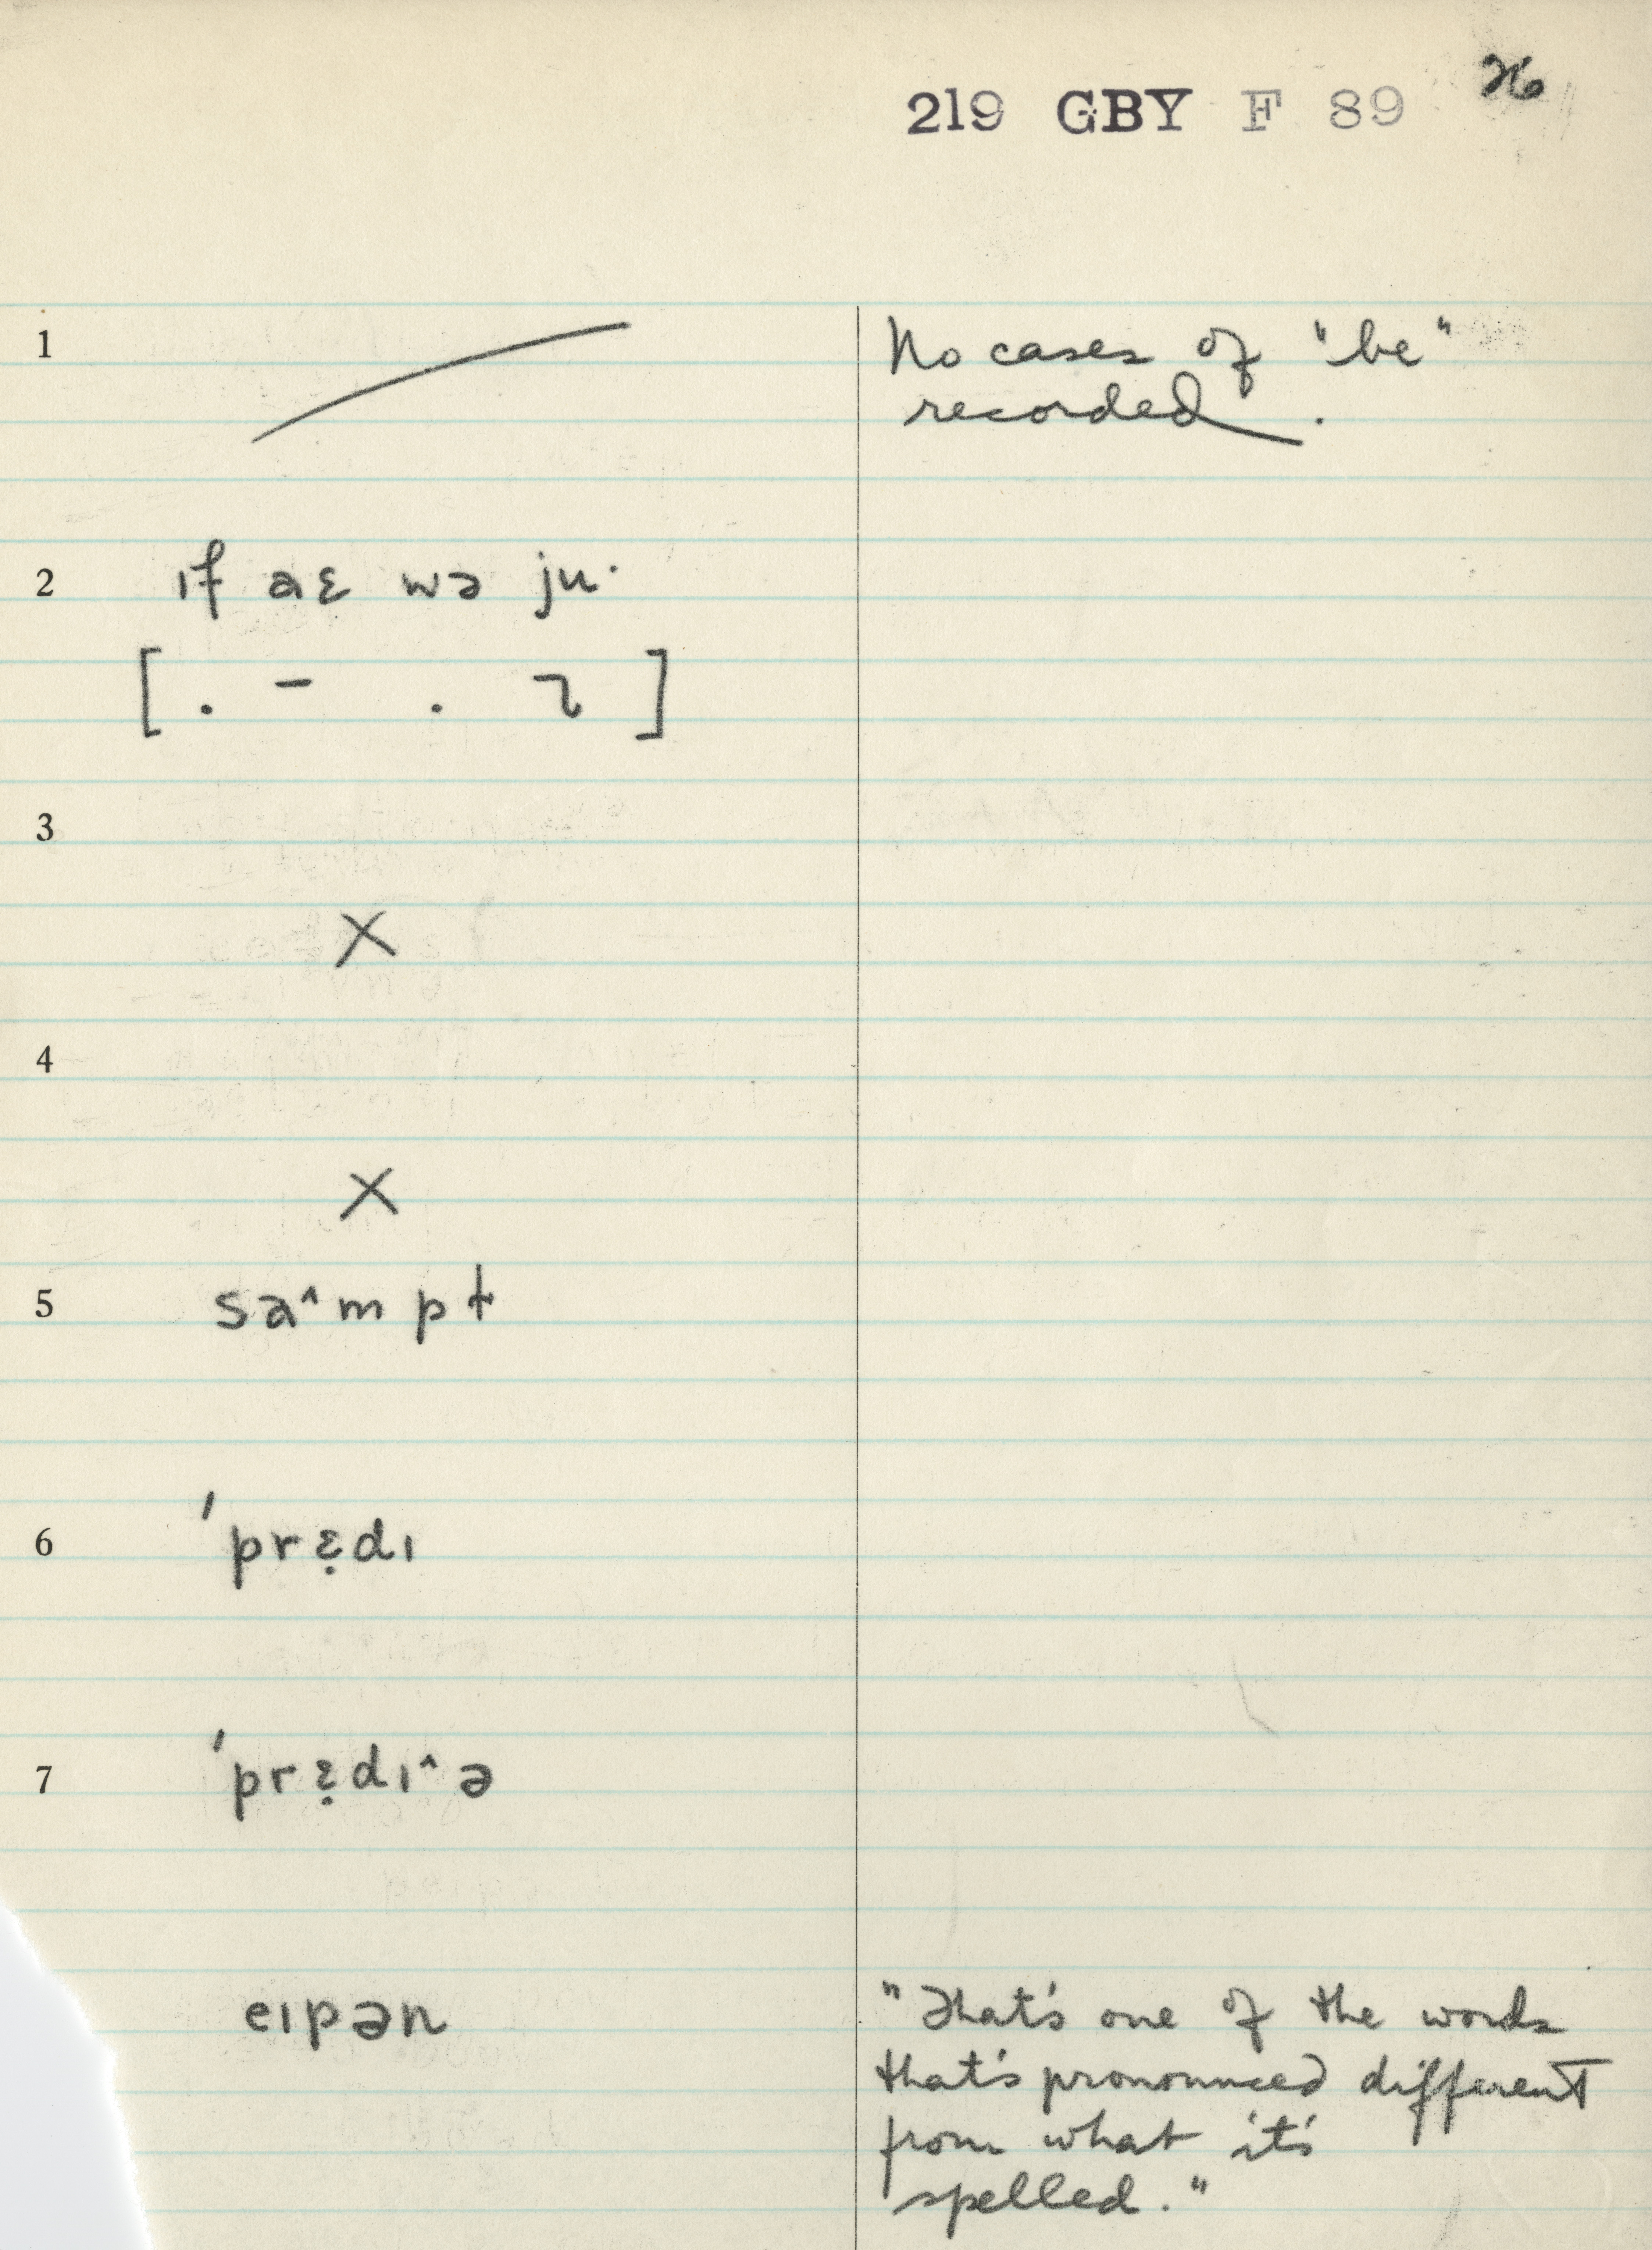 219 GBY F 89 26
1 No cases of "be"
recorded.
2 ɪf aɛ wə ju·
[ . – . ]
3
X
4
X
5 sa^mpt
6 'prɛ̣dɪ
7 'prɛ̣dɪ^ə
eɪpən "That's one of the words
that's pronounced different
from what it's
spelled."